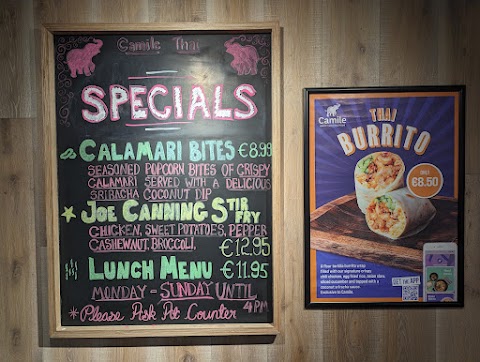 Camile Thai
SPECIALS
CALAMARI BITES €8.99
SEASONED POPCORN BITES OF CRISPY
CALAMARI SERVED WITH A DELICIOUS
SRIRACHA COCONUT DIP
JOE CANNING STIR
FRY
CHICKEN, SWEET POTATOES, PEPPER
CASHEWNUT, BROCCOLI. €12.95
LUNCH MENU €11.95
MONDAY - SUNDAY UNTIL
4PM
*Please Ask At Counter
Camile
THAI
BURRITO
ONLY
€8.50
GET the APP